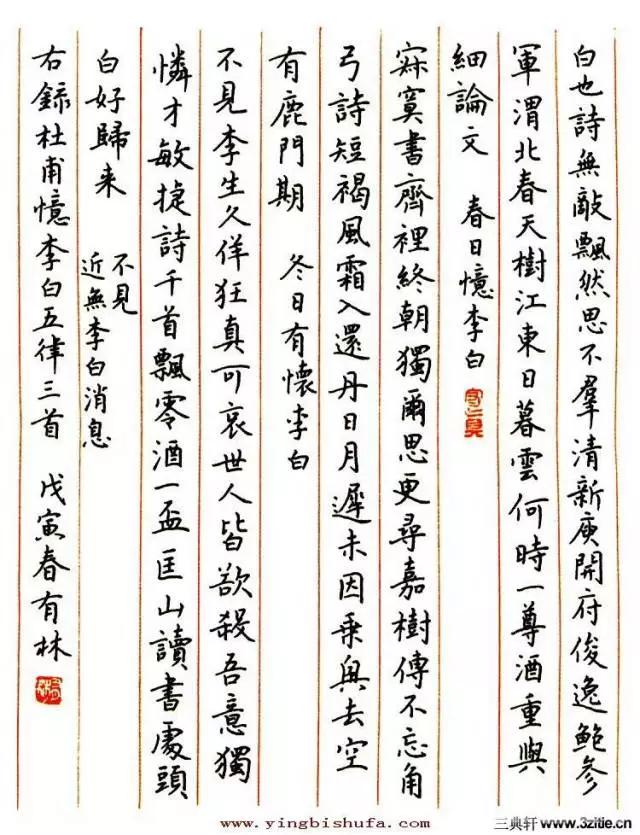 白也詩無敵飄然思不羣清新庾開府俊逸鮑參
軍渭北春天樹江東日暮雲何時一尊酒重與
細論文 春日憶李白
寂寞書齋裡終朝獨爾思更尋嘉樹傳不忘角
弓詩短褐風霜入還丹日月遲未因乗興去空
有鹿門期 冬日有懷李白
不見李生久佯狂真可哀世人皆欲殺吾意獨
憐才敏捷詩千首飄零酒一盃匡山讀書處頭
白好歸来 不見
近無李白消息
右録杜甫憶李白五律三首 戊寅春有林
www.yingbishufa.com
三典轩 www.3zitie.cn